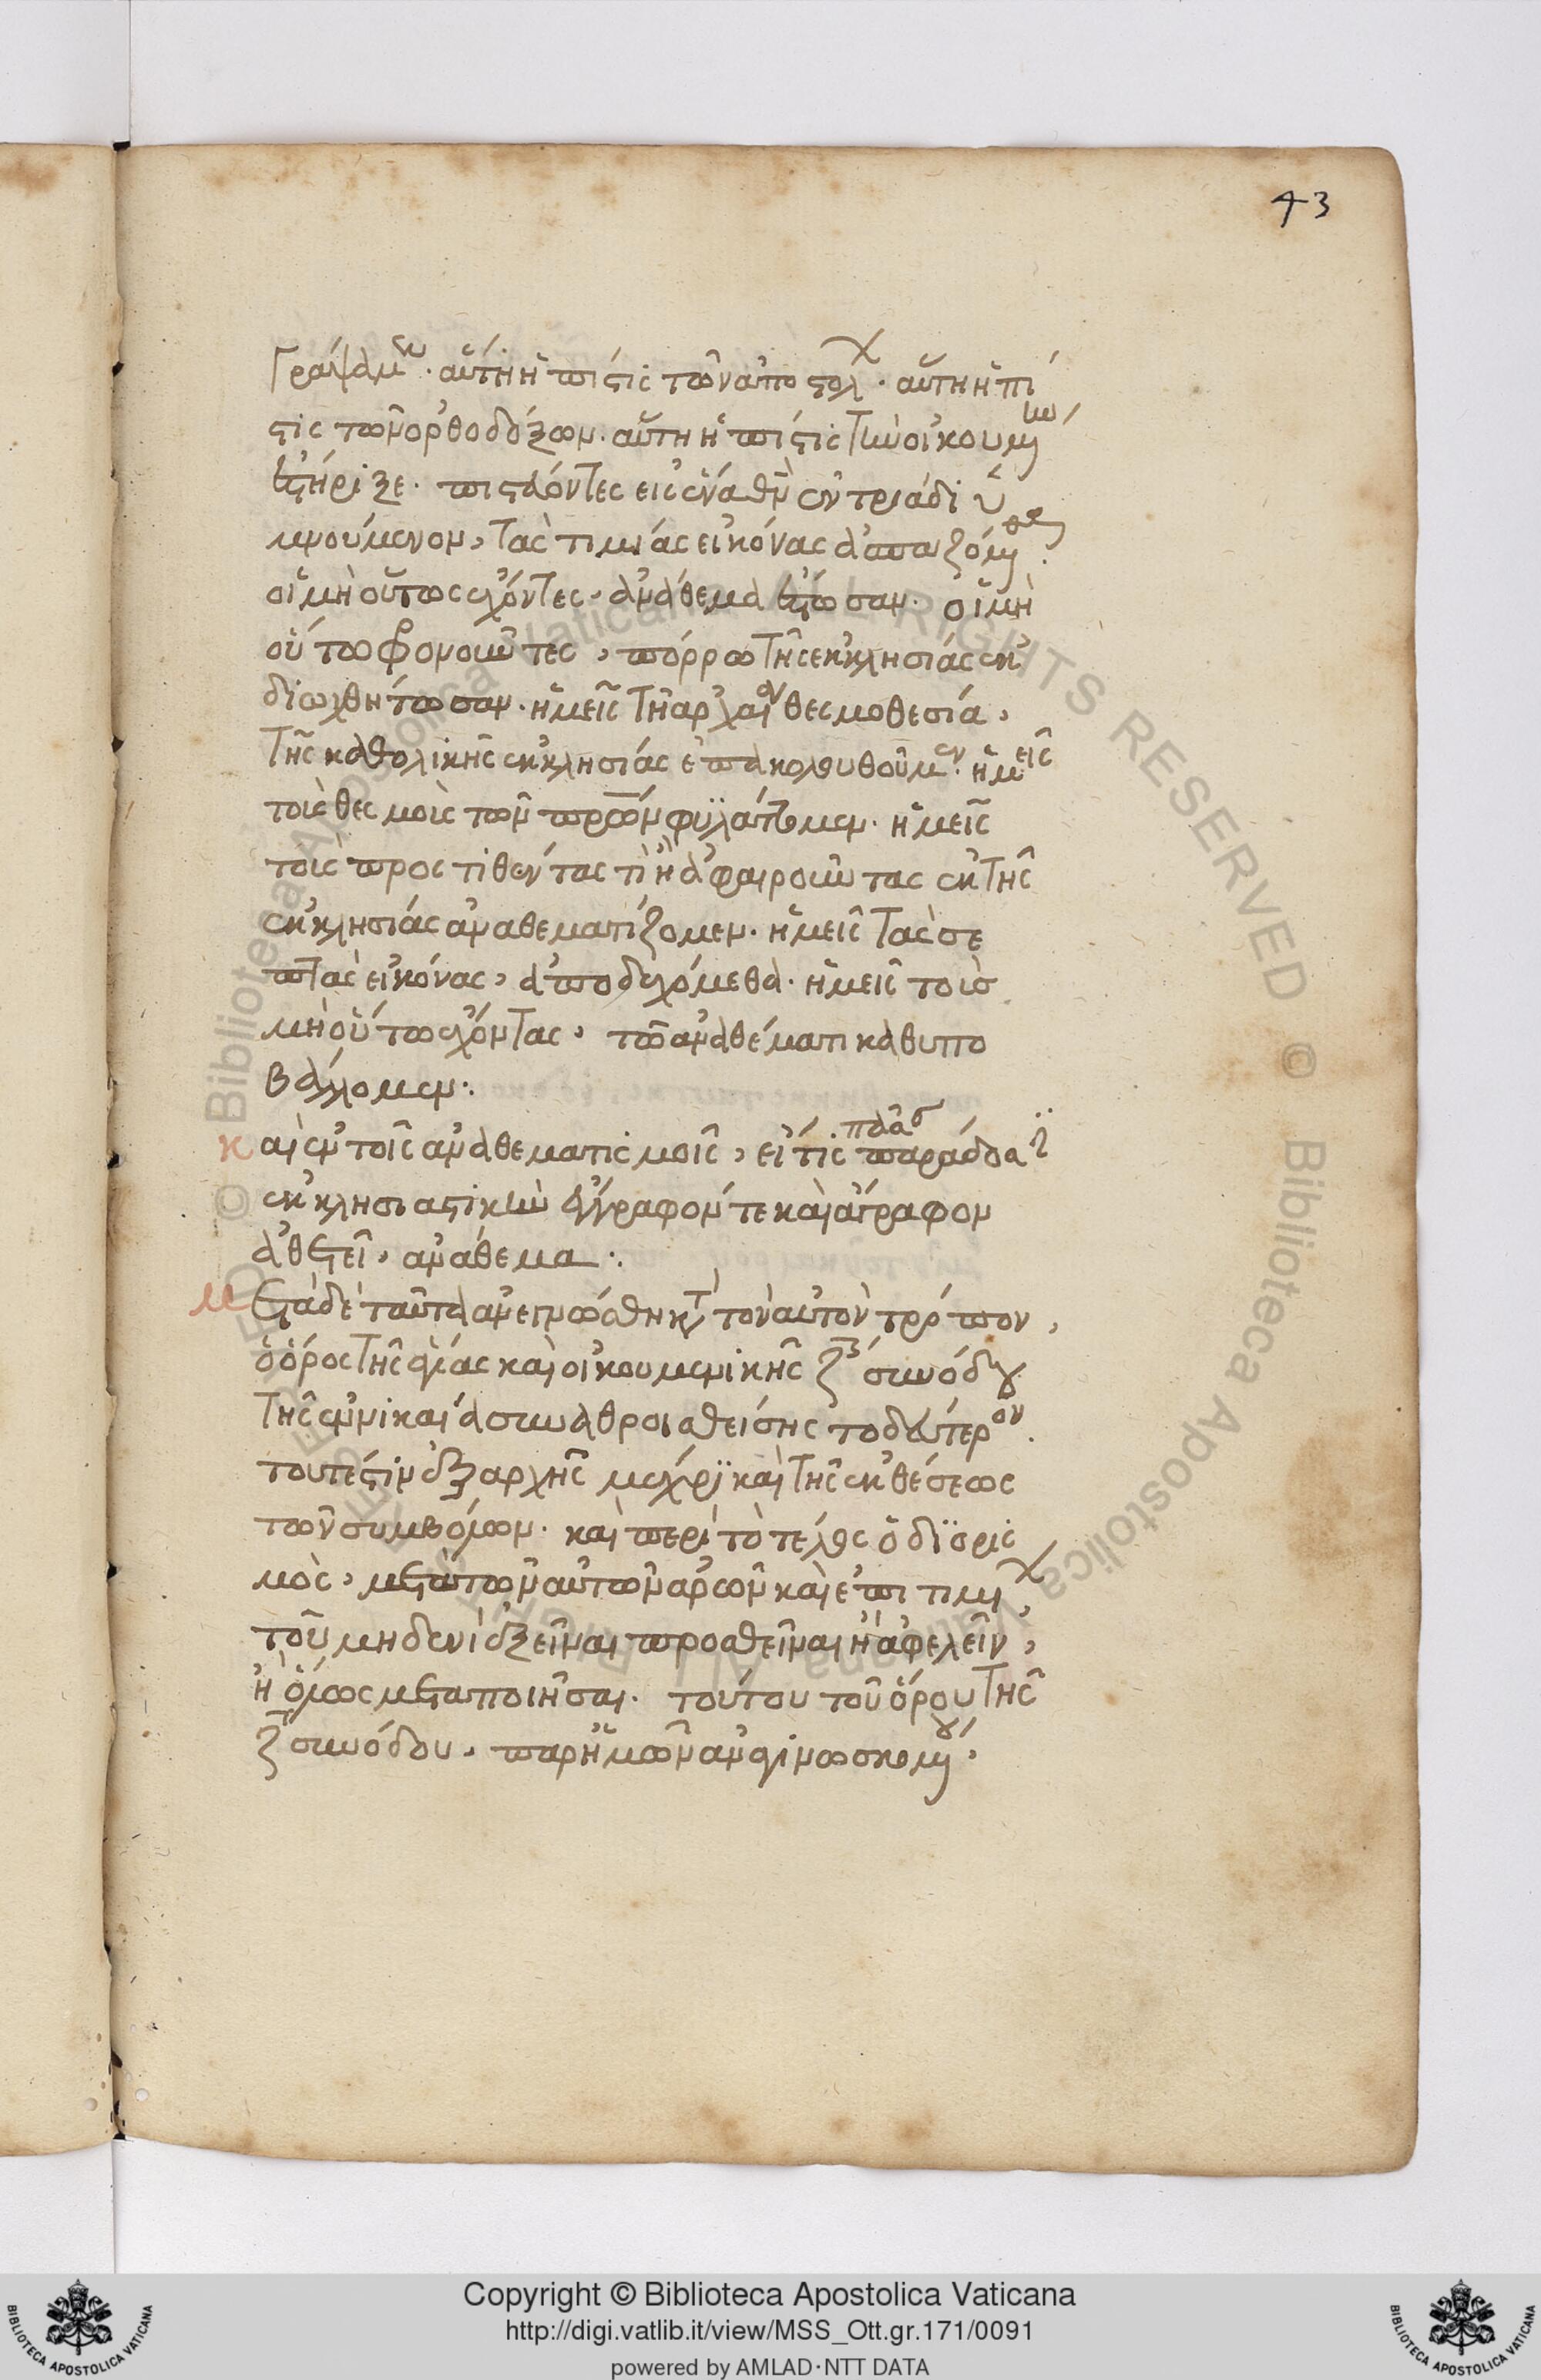 43
γράψαμεν· αὕτη ἡ πίστις τῶν ἀποστόλ· αὕτη ἡ πί
στις τῶν ὀρθοδόξων· αὕτη ἡ πίστις τὴν οἰκουμένην
ἐστήριξε· πιστεύοντες εἰς ἕνα θν ἐν τριάδι ὑ
μνούμενον, τὰς τιμίας εἰκόνας ἀσπαζόμεθα·
οἱ μὴ οὕτως ἔχοντες, ἀνάθεμα ἔστωσαν· οἱ μὴ
οὕτω φρονοῦντες, πόρρω τῆς ἐκκλησίας ἐκ
διωχθήτωσαν· ἡμεῖς τῆ ἀρχαί θεσμοθεσία,
τῆς καθολικῆς ἐκκλησίας ἐπακολουθοῦμεν· ἡμεῖς
τοὺς θεσμοὺς τῶν πρων φυλάττομεν· ἡμεῖς
τοὺς προστιθέντας τὶ ἢ ἀφαιροῦντας ἐκ τῆς
ἐκκλησίας ἀναθεματίζομεν· ἡμεῖς τὰς σε
πτὰς εἰκόνας, ἀποδεχόμεθα· ἡμεῖς τοὺς
μὴ οὕτω ἔχοντας, τῶ ἀναθέματι καθυπο
βάλλομεν:
καὶ ἐν τοῖς ἀναθεματισμοῖς, εἴ τις πᾶσ παράδο
ἐκκλησιαστικὴν ἔγγραφόν τε καὶ ἄγραφον
ἀθετεῖ, ἀνάθεμα:
μετὰ δὲ ταῦτα ἀνεγνώσθη κτ τὸν αὐτὸν τρόπον,
ὁ ὅρος τῆς ἁγίας καὶ οἰκουμενικῆς ζ συνόδου
τῆς ἐν νικαία συναθροισθείσης τὸ δεύτερον·
τουτέστιν ἐξ ἀρχῆς μέχρι καὶ τῆς ἐκθέσεως
τῶν συμβόλων· καὶ περὶ τὸ τέλος ὁ διορισ
μὸς, μετὰ τῶν αὐτῶν ἀρῶν καὶ ἐπιτιμι,
τοῦ μηδενὶ ἐξεῖναι προσθεῖναι ἢ ἀφελεῖν,
ἢ ὅλως μεταποιῆσαι· τούτου τοῦ ὅρου τῆς
ζ συνόδου, παρ' ἡμῶν ἀναγινωσκομένου,
Copyright © Biblioteca Apostolica Vaticana
http://digi.vatlib.it/view/MSS_Ott.gr.171/0091
powered by AMLAD·NTT DATA